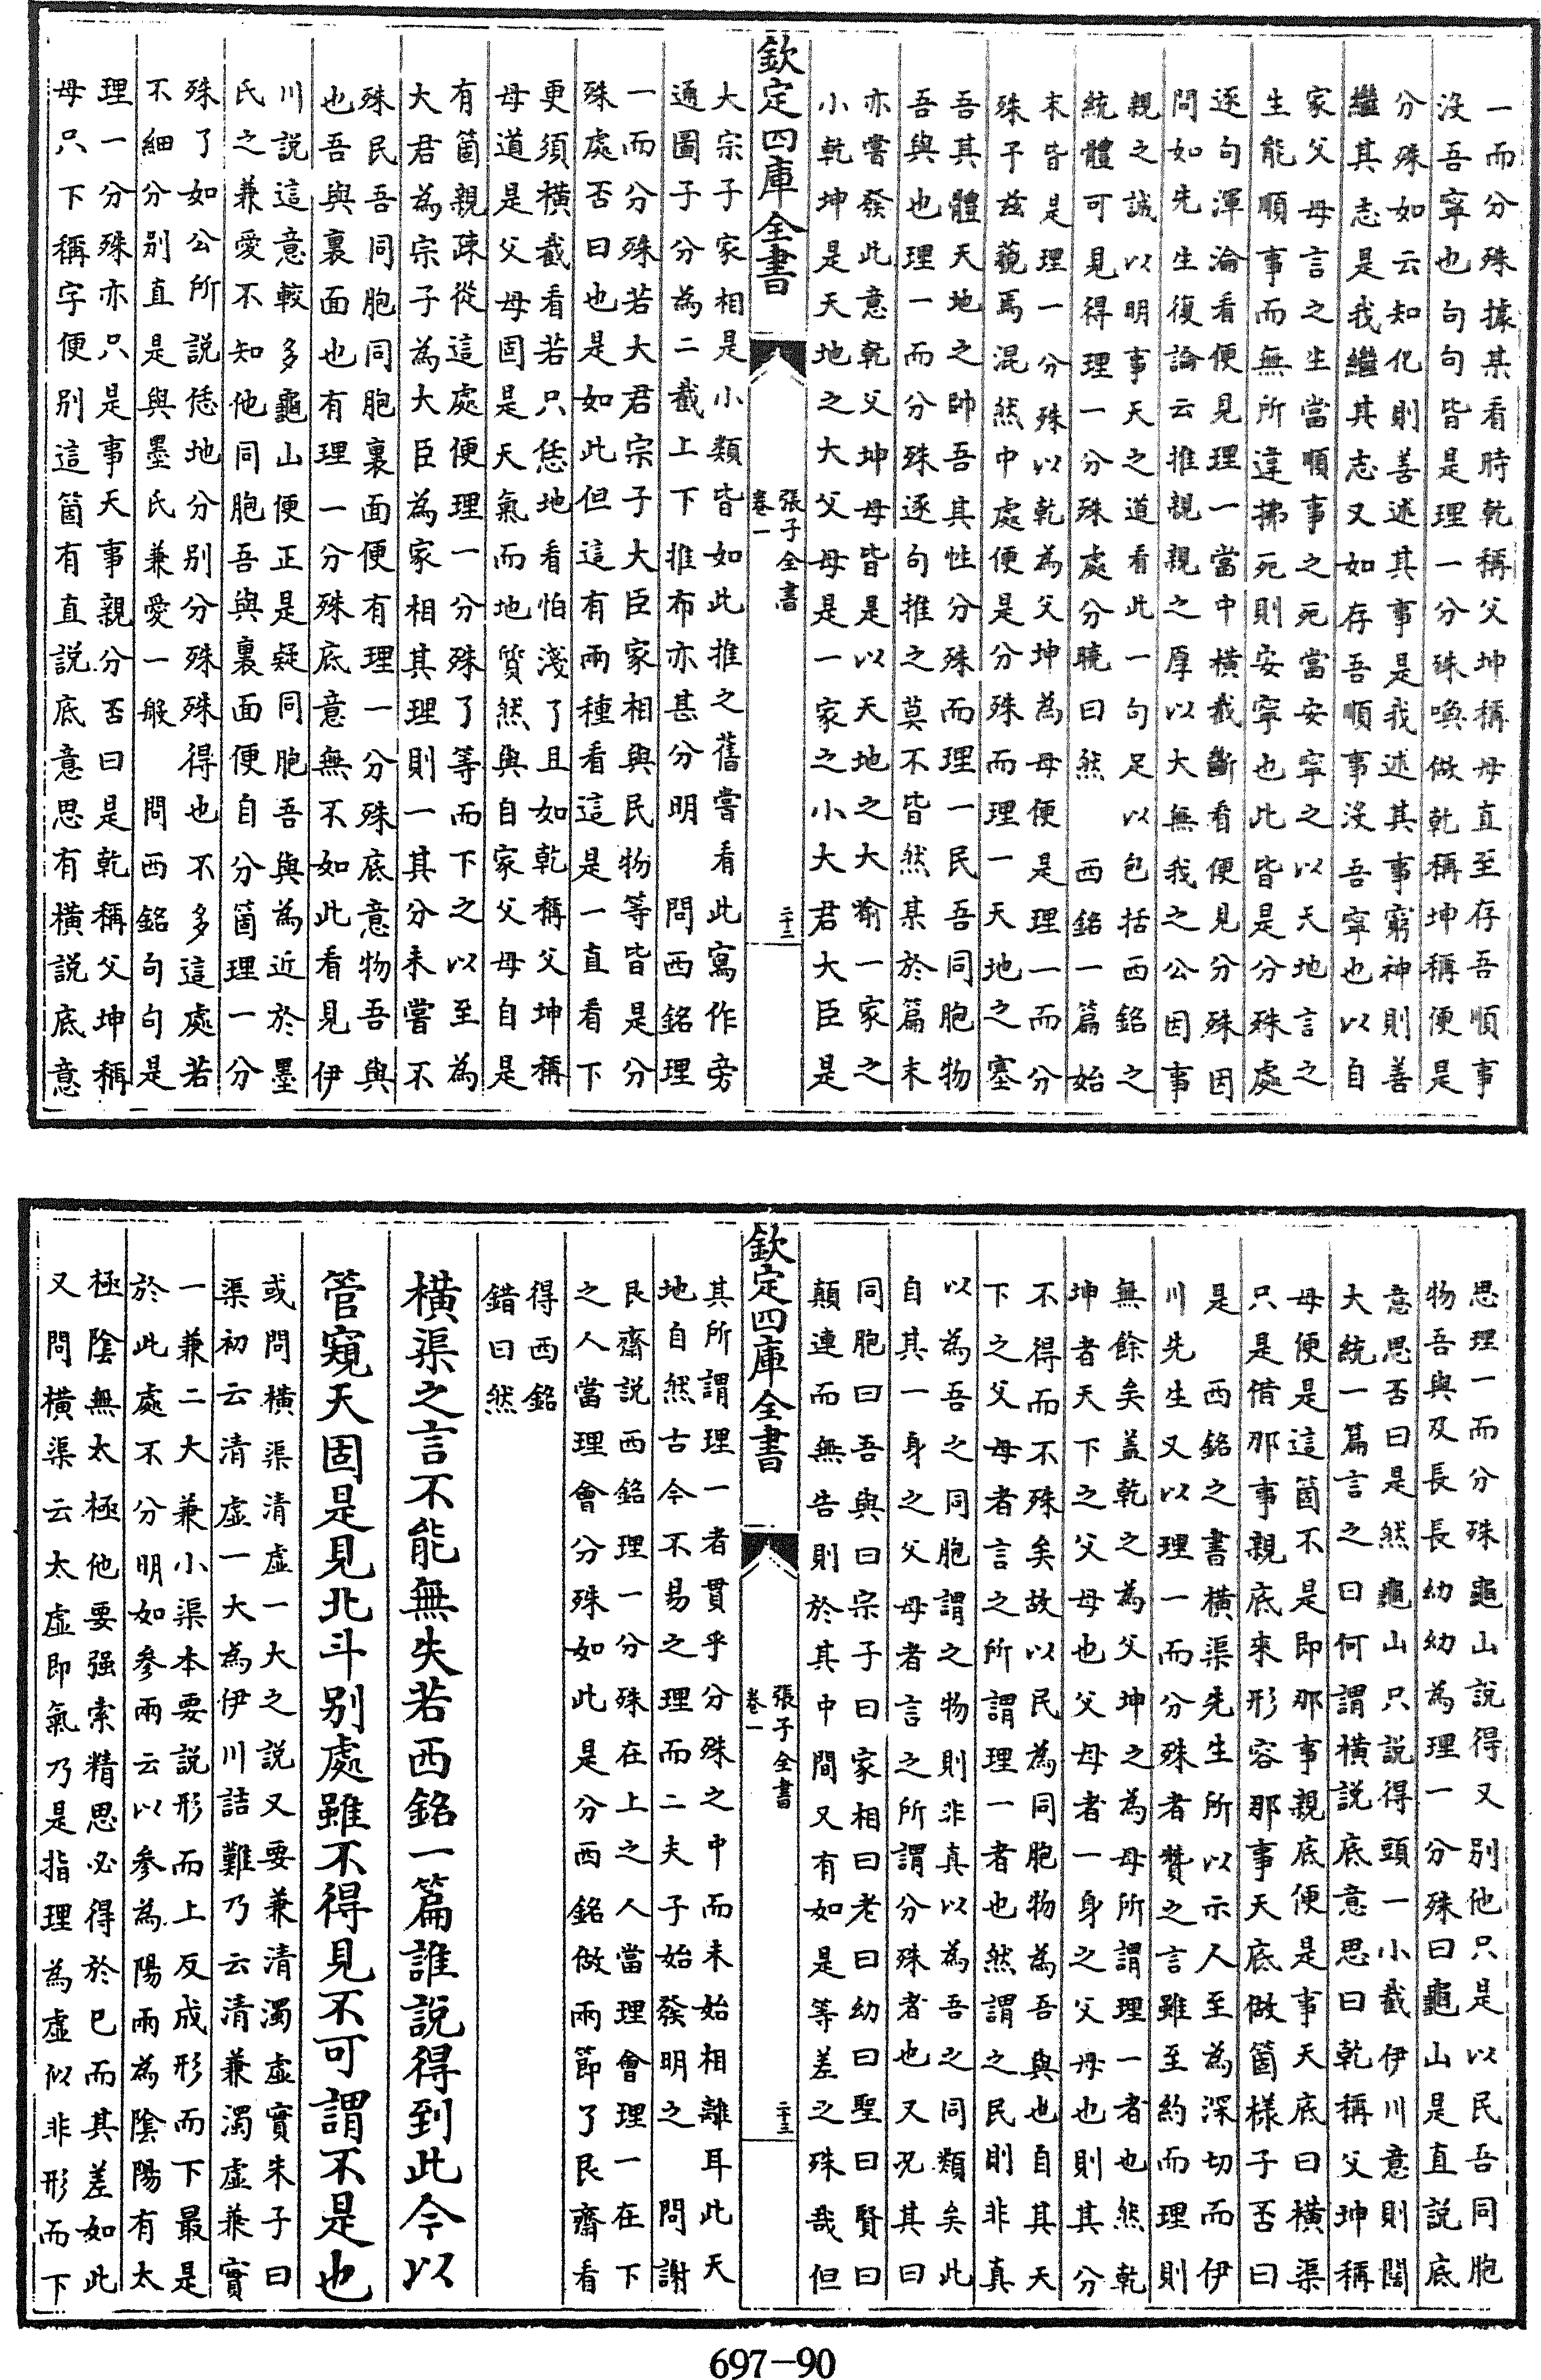 一而分殊據某看時乾稱父坤稱母直至存吾順事
沒吾寧也句句皆是理一分殊喚做乾稱坤稱便是
分殊如云知化則善述其事是我述其事窮神則善
繼其志是我繼其志又如存吾順事沒吾寧也以自
家父母言之生當順事之死當安寧之以天地言之
生能順事而無所違拂死則安寧也此皆是分殊處
逐句渾淪看便見理一當中橫截斷看便見分殊因
問如先生復論云推親親之厚以大無我之公因事
親之誠以明事天之道看此一句足以包括西銘之
統體可見得理一分殊處分曉曰然　西銘一篇始
末皆是理一分殊以乾為父坤為母便是理一而分
殊予茲藐焉混然中處便是分殊而理一天地之塞
吾其體天地之帥吾其性分殊而理一民吾同胞物
吾與也理一而分殊逐句推之莫不皆然某於篇末
亦嘗發此意乾父坤母皆是以天地之大喻一家之
小乾坤是天地之大父母是一家之小大君大臣是
欽定四庫全書
張子全書
卷一
二十二
大宗子家相是小類皆如此推之舊嘗看此寫作旁
通圖子分為二截上下推布亦甚分明　問西銘理
一而分殊若大君宗子大臣家相與民物等皆是分
殊處否曰也是如此但這有兩種看這是一直看下
更須橫截看若只恁地看怕淺了且如乾稱父坤稱
母道是父母固是天氣而地質然與自家父母自是
有箇親疎從這處便理一分殊了等而下之以至為
大君為宗子為大臣為家相其理則一其分未嘗不
殊民吾同胞同胞裏面便有理一分殊底意物吾與
也吾與裏面也有理一分殊底意無不如此看見伊
川說這意較多龜山便正是疑同胞吾與為近於墨
氏之兼愛不知他同胞吾與裏面便自分箇理一分
殊了如公所說恁地分別分殊殊得也不多這處若
不細分別直是與墨氏兼愛一般　問西銘句句是
理一分殊亦只是事天事親分否曰是乾稱父坤稱
母只下稱字便別這箇有直說底意思有橫說底意
思理一而分殊龜山說得又別他只是以民吾同胞
物吾與及長長幼幼為理一分殊曰龜山是直說底
意思否曰是然龜山只說得頭一小截伊川意則闊
大統一篇言之曰何謂橫說底意思曰乾稱父坤稱
母便是這箇不是即那事親底便是事天底曰橫渠
只是借那事親底來形容那事天底做箇樣子否曰
是　西銘之書橫渠先生所以示人至為深切而伊
川先生又以理一而分殊者贊之言雖至約而理則
無餘矣蓋乾之為父坤之為母所謂理一者也然乾
坤者天下之父母也父母者一身之父母也則其分
不得而不殊矣故以民為同胞物為吾與也自其天
下之父母者言之所謂理一者也然謂之民則非真
以為吾之同胞謂之物則非真以為吾之同類矣此
自其一身之父母者言之所謂分殊者也又況其曰
同胞曰吾與曰宗子曰家相曰老曰幼曰聖曰賢曰
顛連而無告則於其中間又有如是等差之殊哉但
欽定四庫全書
張子全書
卷一
二十三
其所謂理一者貫乎分殊之中而未始相離耳此天
地自然古今不易之理而二夫子始發明之　問謝
艮齋說西銘理一分殊在上之人當理會理一在下
之人當理會分殊如此是分西銘做兩節了艮齋看
得西銘
錯曰然
橫渠之言不能無失若西銘一篇誰說得到此今以
管窺天固是見北斗別處雖不得見不可謂不是也
或問橫渠清虛一大之說又要兼清濁虛實朱子曰
渠初云清虛一大為伊川詰難乃云清兼濁虛兼實
一兼二大兼小渠本要說形而上反成形而下最是
於此處不分明如參兩云以參為陽兩為陰陽有太
極陰無太極他要强索精思必得於已而其差如此
又問橫渠云太虛即氣乃是指理為虛似非形而下
697-90